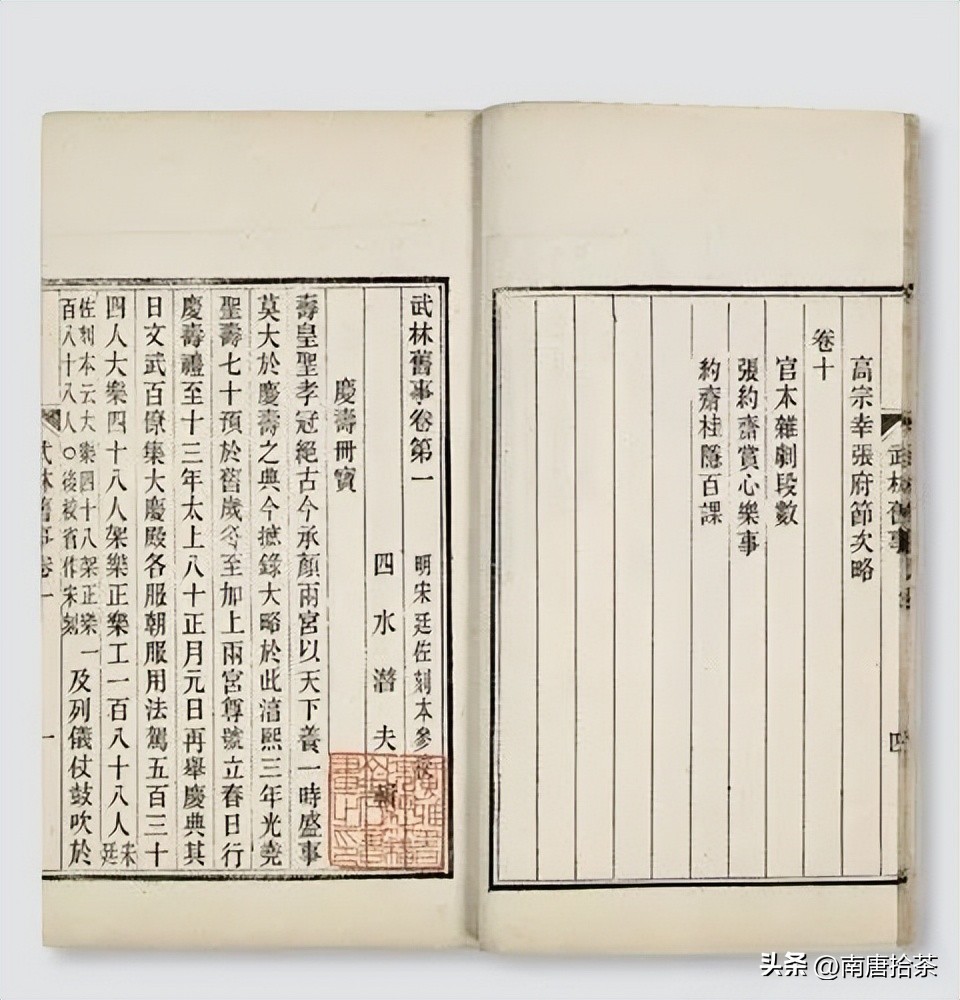 高宗幸張府節次略
卷十
官本雜劇段數
張約齋賞心樂事
約齋桂隱百課
武林舊事
四
武林舊事卷第一 明宋廷佐刻本參校
四水潛夫輯
慶壽冊寶
壽皇聖孝冠絕古今承顏兩宮以天下養一時盛事
莫大於慶壽之典今摭錄大略於此淳熙三年光堯
聖壽七十預於舊歲冬至加上兩宮尊號立春日行
慶壽禮至十三年太上八十正月元日再舉慶典其
日文武百僚集大慶殿各服朝服用法駕五百三十
四人大樂四十八人架樂正樂工一百八十八人宋廷
佐刻本云大樂四十八架正樂一
百八十八人○後校省作宋刻
及列儀仗鼓吹於
武林舊事卷一
一
头条 @南唐拾茶